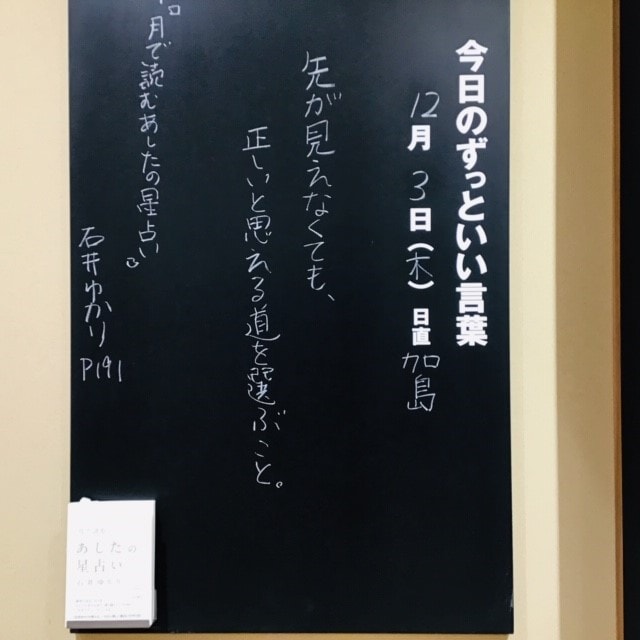 今日のずっといい言葉
12月3日(木)日直 加島
先が見えなくても、
正しいと思える道を選ぶこと。
月で読むあしたの星占い』
石井ゆかり P191
あしたの
星占い
石井ゆかり